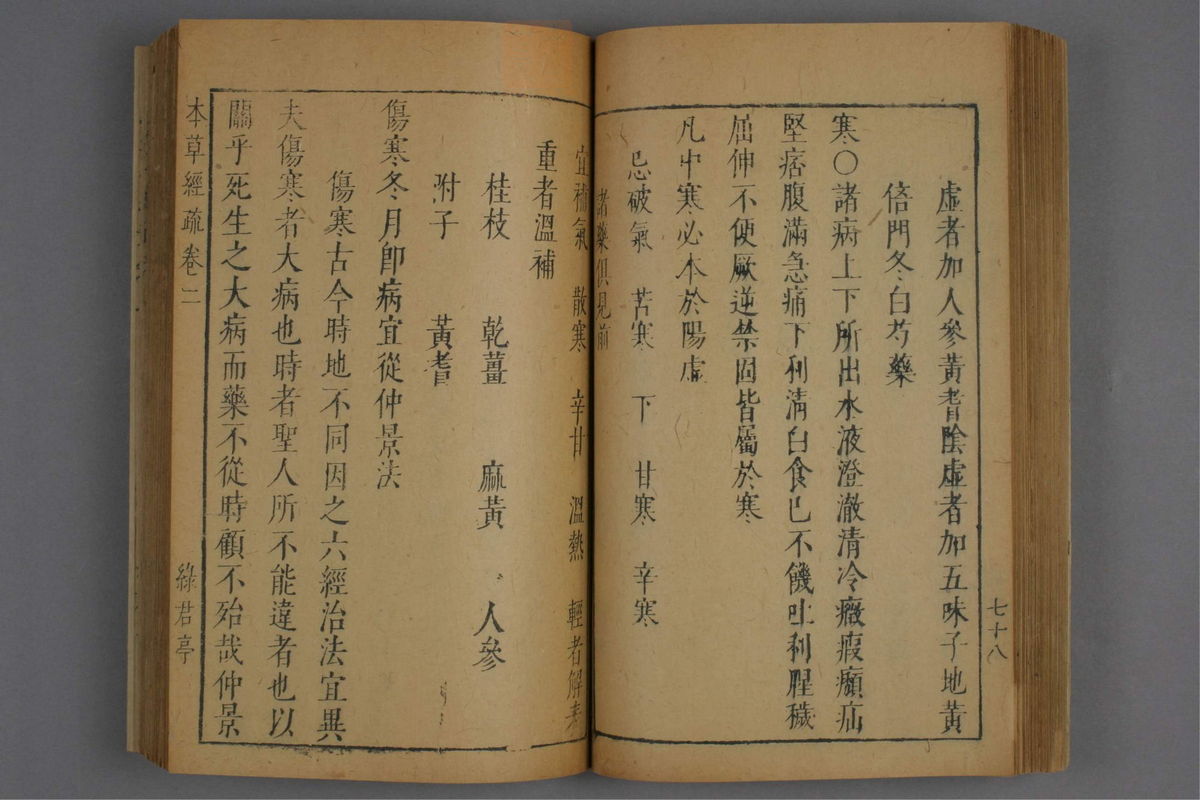 七十八
虛者加人參黃耆陰虛者加五味子地黃
倍門冬白芍藥
寒〇諸病上下所出水液澄澈清冷癥瘕㿗疝
堅痞腹滿急痛下利清白食已不饑吐利腥穢
屈伸不便厥逆禁固皆屬於寒
凡中寒必本於陽虛
忌破氣 苦寒 下 甘寒 辛寒
諸藥俱見前
宜補氣 散寒 辛甘 溫熱 輕者解表
重者溫補
桂枝 乾薑 麻黃 人參
附子 黃耆
傷寒冬月卽病宜從仲景法
傷寒古今時地不同因之六經治法宜異
夫傷寒者大病也時者聖人所不能違者也以
關乎死生之大病而藥不從時顧不殆哉仲景
本草經疏卷二 綠君亭